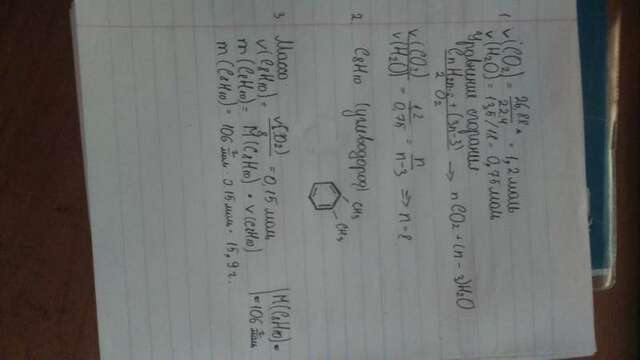 1 ν(CO2) = 26,88л / 22,4 = 1,2 моль
ν(H2O) = 13,5/18 = 0,75 моль
Уравнение сгорания
CnH2n-6 + (3n-3)/2 O2 → nCO2 + (n-3)H2O
ν(CO2)/ν(H2O) = 1,2/0,75 = n/n-3 => n=8
2 C8H10 (углеводород)
CH3
CH3
3 Масса
ν(C8H10) = ν(CO2)/8 = 0,15 моль
m(C8H10) = M(C8H10) · ν(C8H10)
m(C8H10) = 106 г/моль · 0,15 моль = 15,9 г.
M(C8H10) =
= 106 г/моль